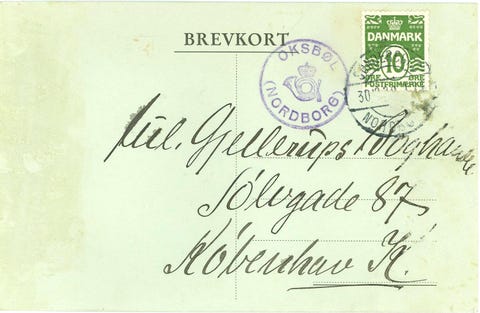 BREVKORT
OKSBØL
(NORDBORG)
DANMARK
10
ØRE ØRE
POSTFRIMÆRKE
30
NORDB
Jul. Gjellerups Boghandel
Sølvgade 87
København K.